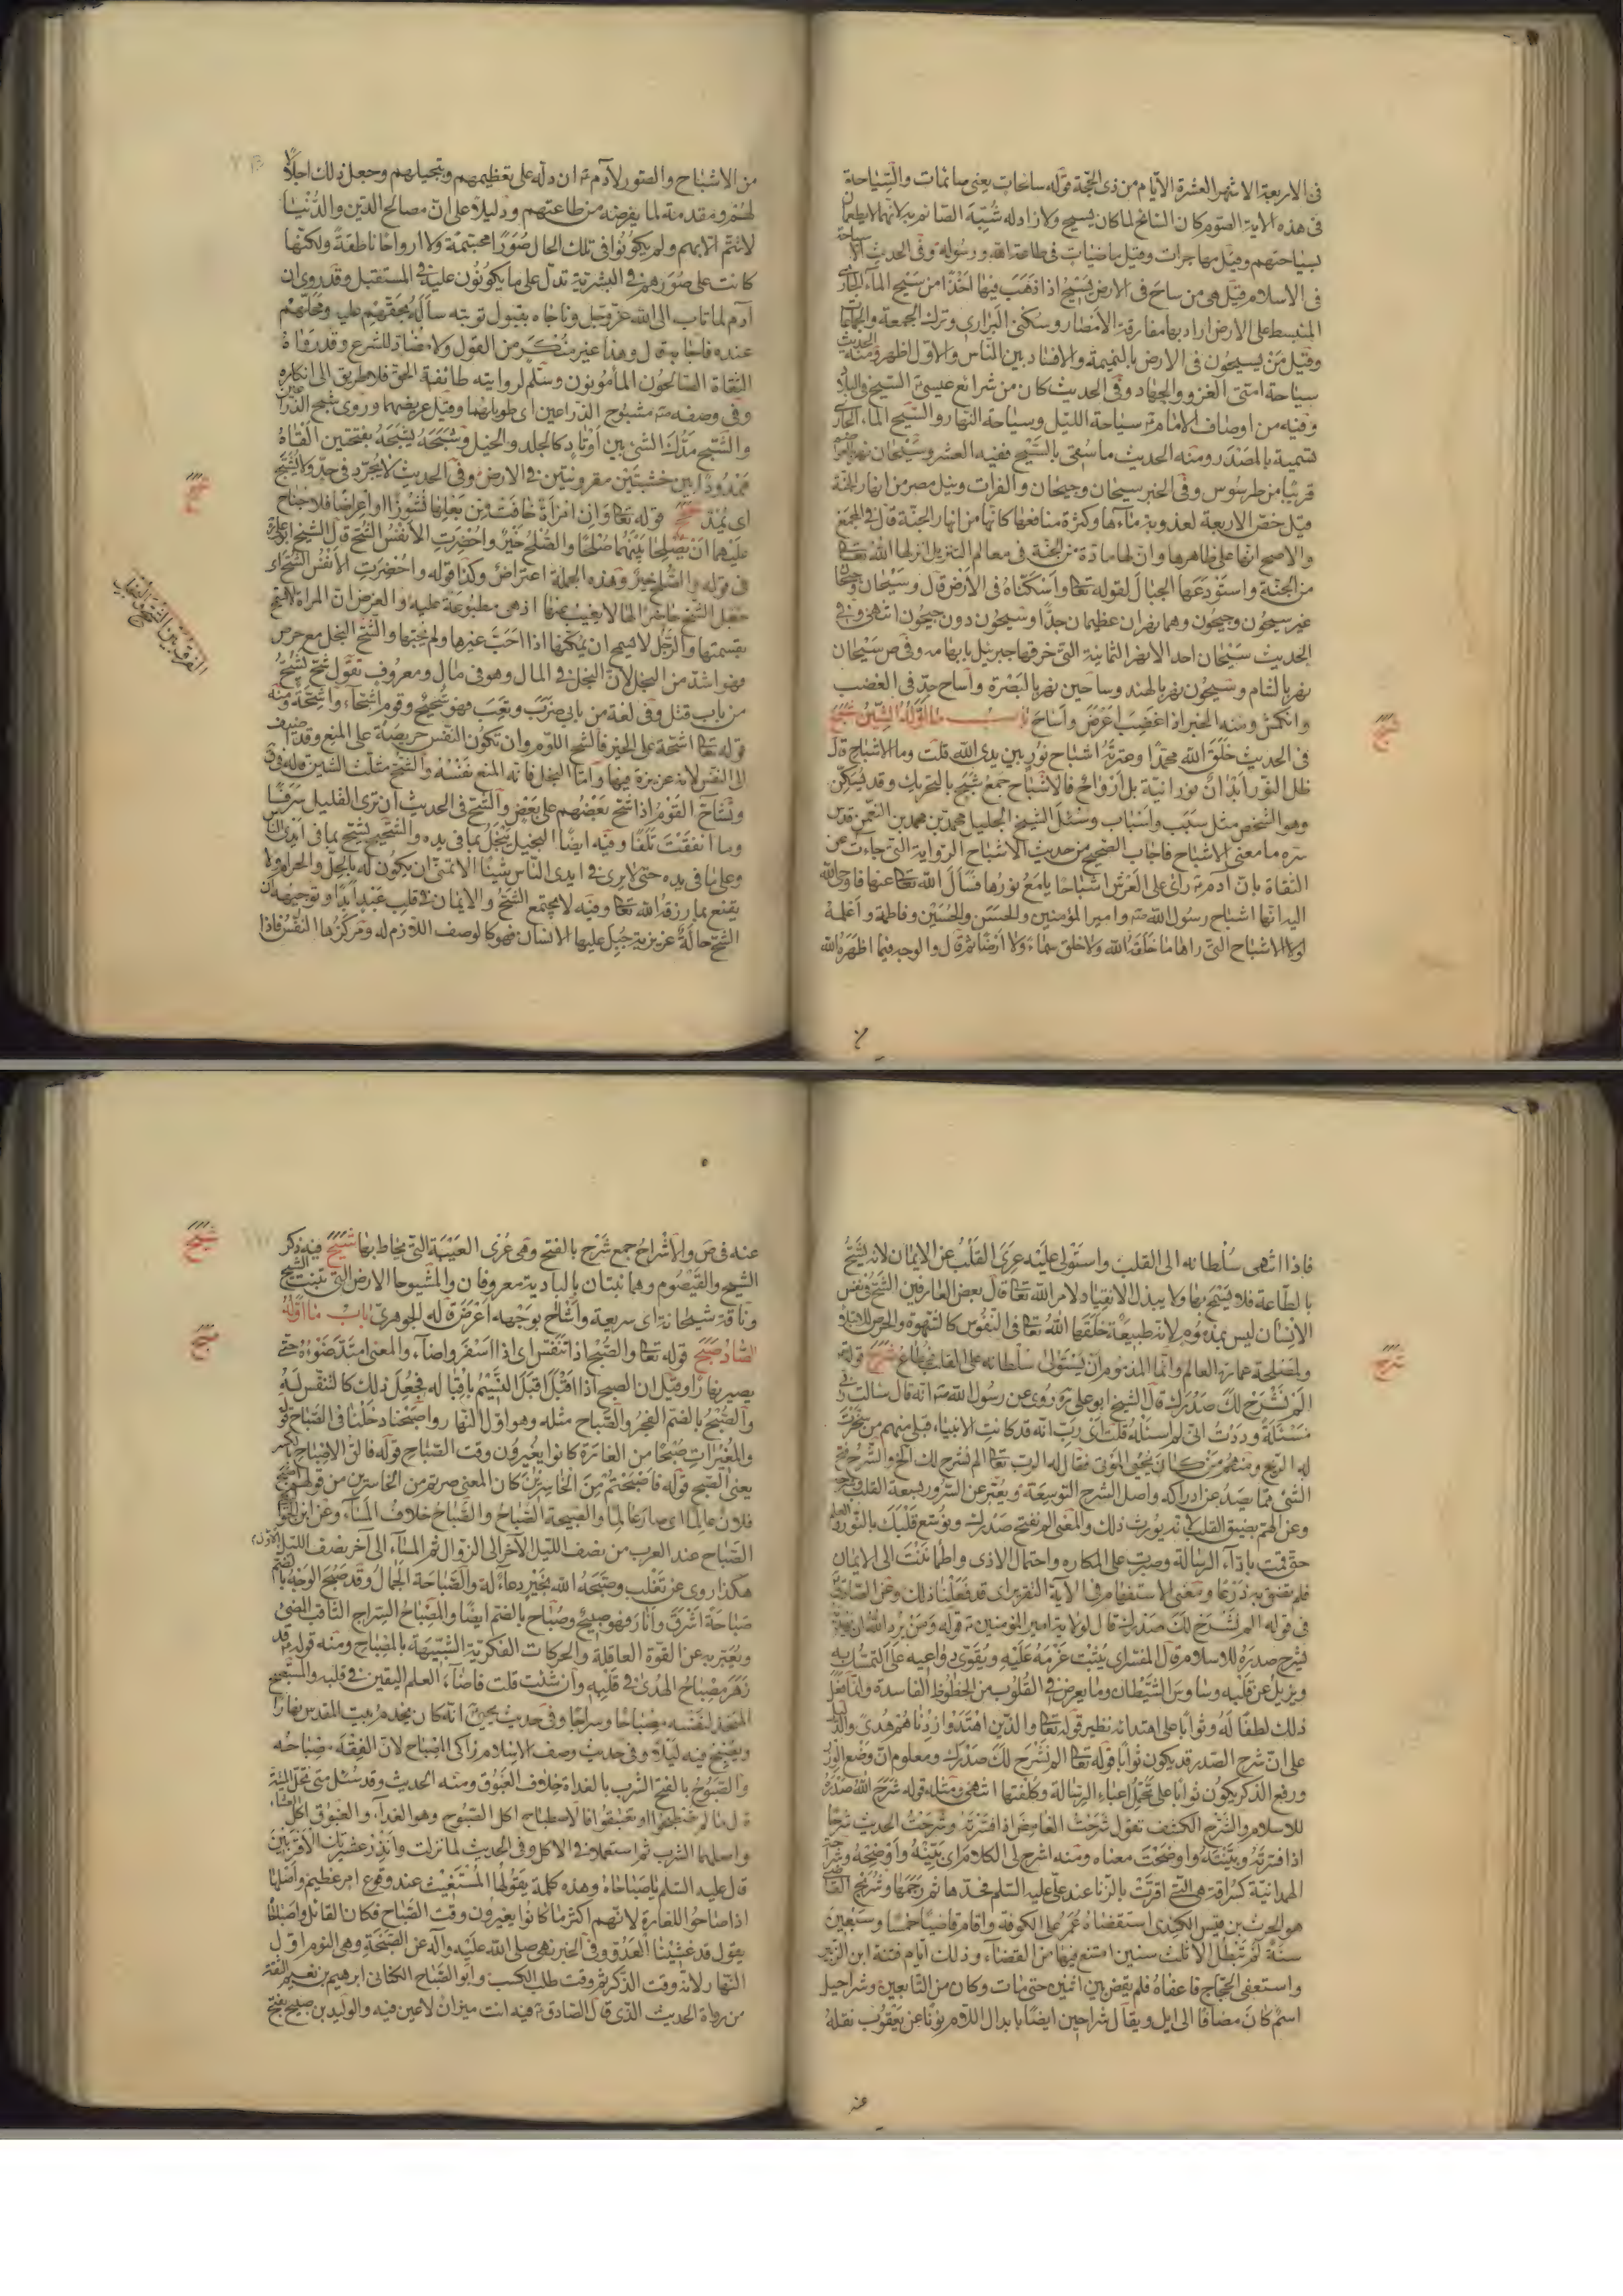 فى الاربعة الاشهر العشرة الايام من ذى الحجة قوله سائحات يعنى صائمات والسياحة
فى هذه الاية الصوم كان السائح لما كان يسيح ولا زاد له شبه الصائم به لانهما لا يطعمان
بسياحتهم وقيل مهاجرات وقيل ماضيات فى طاعة الله ورسوله وفى الحديث لا سياحة
فى الاسلام قيل هى من ساح فى الارض يسيح اذا ذهب فيها اخذا من سيح الماء الجارى
المنبسط على الارض اراد بها مفارقة الامصار وسكنى البرارى وترك الجمعة والجماعات
وقيل من يسيحون فى الارض بالنميمة والافساد بين الناس والاول اظهر ومنه الحديث
سياحة امتى الغزو والجهاد وفى الحديث كان من شرائع عيسى السيح فى البلاد
وفيه من اوصاف الامام سياحة الليل وسياحة النهار والسيح الماء الجارى
تسمية بالمصدر ومنه الحديث ما سقى بالسيح ففيه العشر وسيحان نهر
قريبا من طرسوس وفى الخبر سيحان وجيحان والفرات ونيل مصر من انهار الجنة
قيل خص الاربعة لعذوبة مائها وكثرة منافعها كانها من انهار الجنة قال فى المجمع
والاصح انها على ظاهرها وان لها مادة من الجنة فى معالم التنزيل انزلها الله تعالى
من الجنة واستودعها الجبال لقوله تعالى واسكناه فى الارض قال وسيحان وجيحان
غير سيحون وجيحون وهما نهران عظيمان جدا وسيحون دون جيحون انتهى وفى
الحديث سيحان احد الانهر الثمانية التى خرقها جبرئيل بابهامه وفى ص سيحان
نهر بالشام وسيحون نهر بالهند وساحين نهر بالبصرة واساح جد فى الغضب
وانكمش ومنه الخبر اذا غضب اعرض واساح باب ما اوله الشين شبح
فى الحديث خلق الله محمدا وعترته اشباح نور بين يدى الله قلت وما الاشباح قال
ظل النور ابدان نورانية بل ارواح فالاشباح جمع شبح بالتحريك وقد يسكن
وهو الشخص مثل سبب واسباب وسئل الشيخ الجليل محمد بن محمد بن النعمن قدس
سره ما معنى الاشباح فاجاب الصحيح من حديث الاشباح الرواية التى جاءت عن
الثقاة بان آدم راى على العرش اشباحا يلمع نورها فسأل الله تعالى عنها فاوحى الله
اليه انها اشباح رسول الله وامير المؤمنين والحسن والحسين وفاطمة واعلمه
لولا الاشباح التى راها ما خلقه الله ولا خلق سماء ولا ارضا ثم قال والوجه فيما اظهره الله
شبح
من الاشباح والصور لآدم ان دله على تعظيمهم وتبجيلهم وجعل ذلك اجلالا
لهم ومقدمة لما يفرضه من طاعتهم ودليلا على ان مصالح الدين والدنيا
لا تتم الا بهم ولم يكونوا فى تلك الحال صورا مجتمة ولا ارواحا ناطقة ولكنها
كانت على صورهم فى البشرية تدل على ما يكونون عليه فى المستقبل وقد روى ان
آدم لما تاب الى الله عز وجل وناجاه بقبول توبته سأله بحقهم عليه ومحلهم
عنده فاجابه قال وهذا غير منكر من القول ولا مضاد للشرع وقد رواه
الثقاة الصالحون المأمونون وسلم لروايته طائفة الحق فلا طريق الى انكاره
وفى وصفه مشبوح الذراعين اى طويلهما وقيل عريضهما وروى شبح الذراعين
والشبح مدك الشئ بين اوتاد كالجلد والحبل وشبحه يشبحه بفتحتين القاه
ممدودا بين خشبتين مقرونتين فى الارض وفى الحديث لا يجرد فى حد ولا يشبح
اى يمد شح قوله تعالى وان امراة خافت من بعلها نشوزا او اعراضا فلا جناح
عليهما ان يصلحا بينهما صلحا والصلح خير واحضرت الانفس الشح قال الشيخ ابو على
فى قوله والصلح خير وهذه الجملة اعتراض وكذا قوله واحضرت الانفس الشح اى
جعل الشح حاضرا لها لا يغيب عنها اذ هى مطبوعة عليه والغرض ان المراة لا تسمح
بقسمتها والرجل لا يسمح ان يمكنها اذا احب غيرها ولم يحبها والشح البخل مع حرص
فهو اشد من البخل لان البخل فى المال وهو فى مال ومعروف تقول شح يشح
من باب قتل وفى لغة من بابى ضرب وتعب فهو شحيح وقوم اشحاء واشحة ومنه
قوله تعالى اشحة على الخير فالشح اللوم وان تكون النفس حريصة على المنع وقد اضيف
الى النفس لانه غريزة فيها واما البخل فانه المنع نفسه والشح مثلث الشين قاله فى ق
وتشاح القوم اذا شح بعضهم على بعض والشح فى الحديث ان ترى القليل سرفا
وما انفقت تلفا وفيه ايضا البخيل يبخل بما فى يده والشحيح يشح بما فى ايدى الناس
وعلى ما فى يده حتى لا يرى فى ايدى الناس شيئا الا تمنى ان يكون له بالحل والحرام ولا
يقنع بما رزقه الله تعالى وفيه لا يجتمع الشح والايمان فى قلب عبد ابدا وتوجيهه ان
الشح حالة غريزية جبل عليها الانسان فهو كالوصف اللازم له ومركزها النفس فاذا
شح
الفرق بين الشح والبخل
فاذا انتهى سلطانه الى القلب واستولى عليه عرى القلب عن الايمان لانه يشح
بالطاعة فلا يسمح بها ولا يبذل الانقياد لامر الله تعالى قال بعض العارفين الشح فى نفس
الانسان ليس بمذموم لانه طبيعة خلقها الله تعالى فى النفوس كالشهوة والحرص للابتلاء
ولمصلحة عمارة العالم وانما المذموم ان يستولى سلطانه على القلب فيطاع شرح قوله
الم نشرح لك صدرك قال الشيخ ابو على روى عن رسول الله انه قال سالت ربى
مسئلة وددت انى لم اسئله قلت اى رب انه قد كانت الانبياء قبلى منهم من سخرت
له الريح ومنهم من كان يحيى الموتى فقال له الرب تعالى الم نشرح لك الخ والشرح فتح
الشئ مما يصد عن ادراكه واصل الشرح التوسعة ويعبر عن السرور بسعة القلب وشرحه
وعن الهم بضيق القلب لانه يورث ذلك والمعنى الم نفتح صدرك ونوسع قلبك بالنور والعلم
حتى قمت باداء الرسالة وصبرت على المكاره واحتمال الاذى واطماننت الى الايمان
فلم تضق به ذرعا ومعنى الاستفهام فى الآية التقرير اى قد فعلنا ذلك وعن الصادق
فى قوله الم نشرح لك صدرك فقال لولاية امير المؤمنين قوله ومن يرد الله ان يهديه
يشرح صدره للاسلام قال المفسر اى يثبت عزمه عليه ويقوى دواعيه على التمسك به
ويزيل عن قلبه وساوس الشيطان وما يعرض فى القلوب من الخطوظ الفاسدة وانما فعل
ذلك لطفا له وثوابا على اهتدائه نظير قوله تعالى والذين اهتدوا زادهم هدى والدليل
على ان شرح الصدر قد يكون ثوابا قوله تعالى الم نشرح لك صدرك ومعلوم ان وضع الوزر
ورفع الذكر يكون ثوابا على تحمل اعباء الرسالة وكلفتها انتهى ومثله قوله شرح الله صدره
للاسلام والشرح الكشف تقول شرحت الغامض اذا فسرته وشرحت الحديث شرحا
اذا فسرته وبينته واوضحت معناه ومنه اشرح لى الكلام اى بينه واوضحه وشراحة
الهمدانية كسراقة هى التى اقرت بالزنا عند على عليه السلام فحدها ثم رجمها وشريح القاضى
هو الحرث بن قيس الكندى استقضاه عمر على الكوفة واقام قاضيا خمسا وسبعين
سنة لم تبطل الا ثلث سنين امتنع فيها من القضاء وذلك ايام فتنة ابن الزبير
واستعفى الحجاج فاعفاه فلم يقض بين اثنين حتى مات وكان من التابعين وشراحيل
اسم كان مضافا الى ايل ويقال شراحين ايضا بابدال اللام نونا عن يعقوب نقله
عنه
شرح
عنه فى ص والاشراح جمع شرج بالفتح وهى عرى العيبة التى يخاط بها شيح فيه ذكر
الشيح والقيصوم وهما نبتان بالبادية معروفان والمشيوحا الارض التى تنبت الشيح
وناقة شيحانة اى سريعة واشاح بوجهه اعرض قاله الجوهرى باب ما اوله
الصاد صبح قوله تعالى والصبح اذا تنفس اى اذا اسفر واضاء والمعنى امتد ضوءه حتى
يصير نهارا وقيل ان الصبح اذا اقبل اقبل النسيم باقباله فجعل ذلك كالنفس له
والصبح بالضم الفجر والصباح مثله وهو اول النهار واصبحنا دخلنا فى الصباح قوله
والمغيرات صبحا من الغارة كانوا يغيرون وقت الصباح قوله فالق الاصباح بالكسر
يعنى الصبح قوله فاصبحتم من الخاسرين كان المعنى صرتم من الخاسرين من قولهم اصبح
فلان عالما اى صار عالما والصبيحة الصباح والصباح خلاف المساء وعن ابن الجواليقى
الصباح عند العرب من نصف الليل الآخر الى الزوال ثم المساء الى آخر نصف الليل الاول
هكذا روى عن ثعلب وصبحه الله بخير دعاء له والصباحة الجمال وقد صبح الوجه بالضم
صباحة اشرق وانار فهو صبيح وصباح بالضم ايضا والمصباح السراج الثاقب المضئ
ويعبر به عن القوة العاقلة والحركات الفكرية الشبيهة بالمصباح ومنه قوله قد
زهر مصباح الهدى فى قلبه وان شئت قلت فاضاء العلم اليقين فى قلبه والمستصبح
المتخذ لنفسه مصباحا وسراجا وفى حديث يحيى انه كان يخدم بيت المقدس نهارا
ويصبح فيه ليلا وفى حديث وصف الاسلام زاكى المصباح لان الفقه مصباحه
والصبوح بالفتح الشرب بالغداة خلاف الغبوق ومنه الحديث وقد سئل متى تحل الميتة
قال ما لم تصطبحوا او تغتبقوا فالاصطباح اكل الصبوح وهو الغداء والغبوق اكل العشاء
واصلهما الشرب ثم استعملا فى الاكل وفى الحديث لما نزلت وانذر عشيرتك الاقربين
قال عليه السلام يا صباحاه وهذه كلمة يقولها المستغيث عند وقوع امر عظيم واصلها
اذا صاحوا للغارة لانهم اكثر ما كانوا يغيرون وقت الصباح فكان القائل واصباحاه
يقول قد غشينا العدو وفى الخبر نهى صلى الله عليه وآله عن الصبحة وهى النوم اول
النهار لانه وقت الذكر ثم وقت طلب الكسب وابو الصباح الكنانى ابرهيم بن نعيم الثقة
من رواة الحديث الذى قال الصادق فيه انت ميزان لا عين فيه والوليد بن صبيح بفتح
شيح
صبح